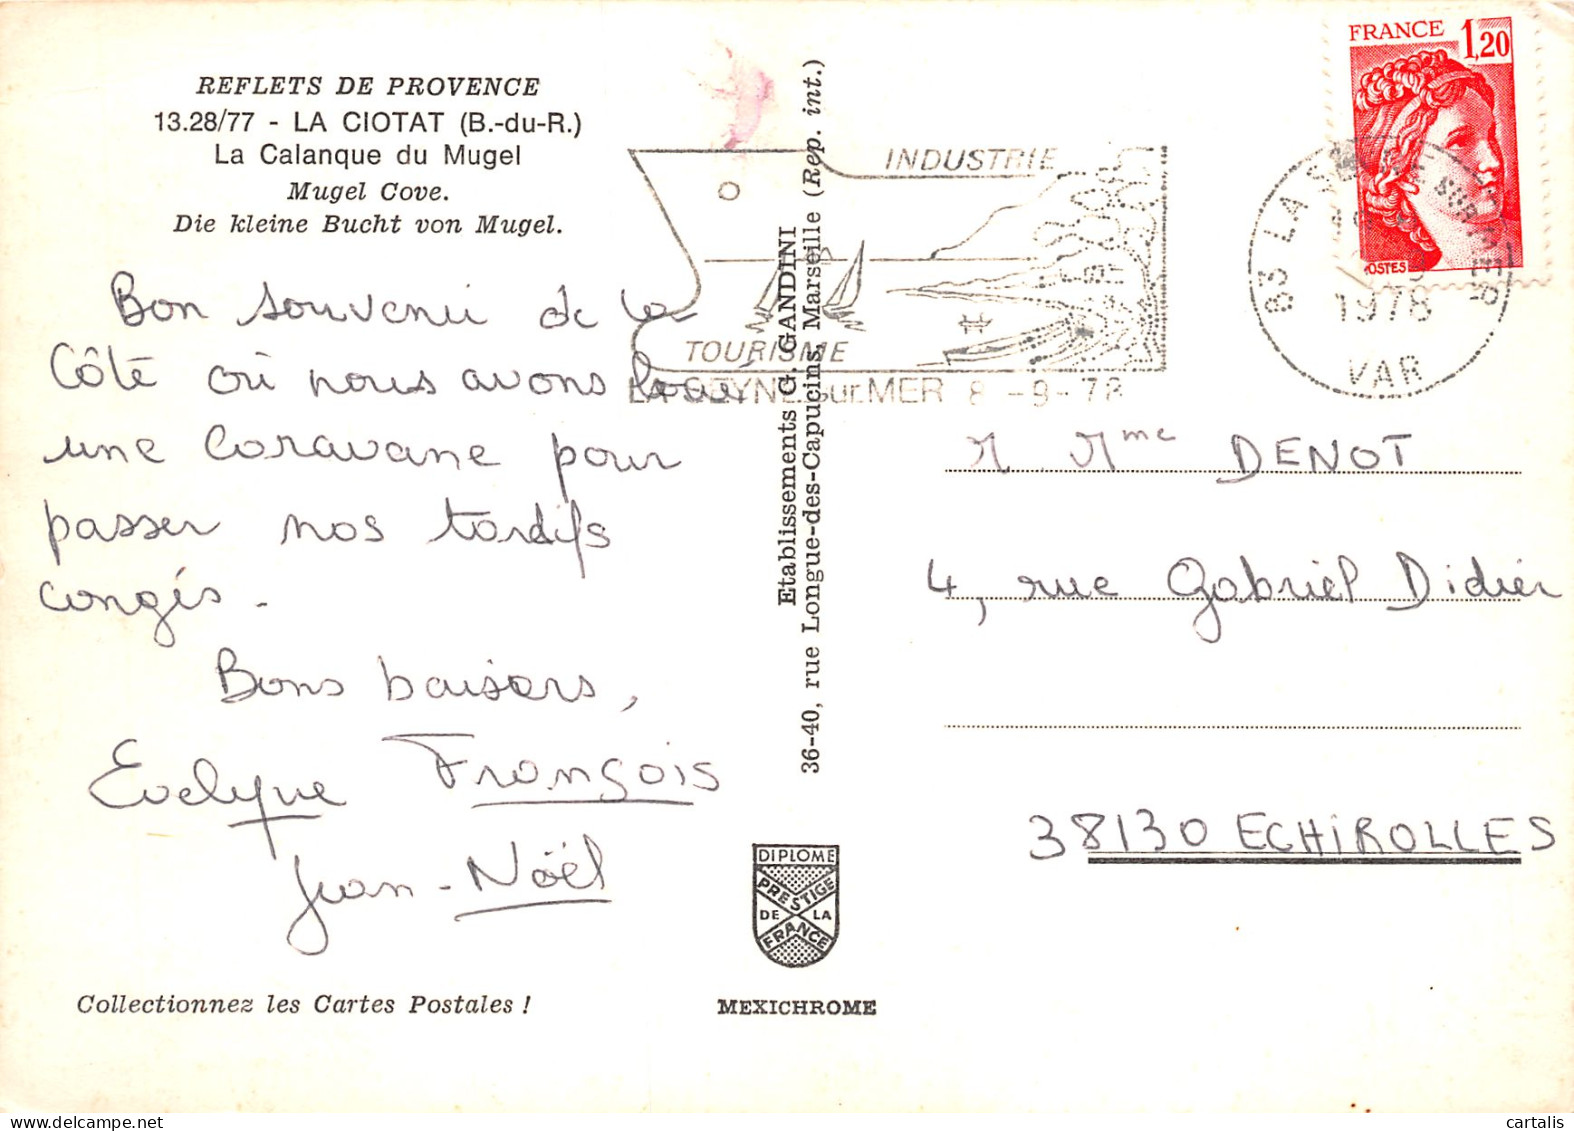 REFLETS DE PROVENCE
13.28/77 - LA CIOTAT (B.-du-R.)
La Calanque du Mugel
Mugel Cove.
Die kleine Bucht von Mugel.
Bon souvenir de la
Côte où nous avons loué
une caravane pour
passer nos tardifs
congés.
Bons baisers,
Evelyne François
Jean-Noël
Collectionnez les Cartes Postales !
Etablissements G. GANDINI
36-40, rue Longue-des-Capucins, Marseille (Rep. int.)
DIPLOME
PRESTIGE
DE LA
FRANCE
MEXICHROME
INDUSTRIE
TOURISME
LA SEYNE sur MER 8 -9- 78
FRANCE 1,20
POSTES
83 LA SEYNE SUR MER
1978
VAR
M Mme DENOT
4, rue Gabriel Didier
38130 ECHIROLLES
cartalis
delcampe.net